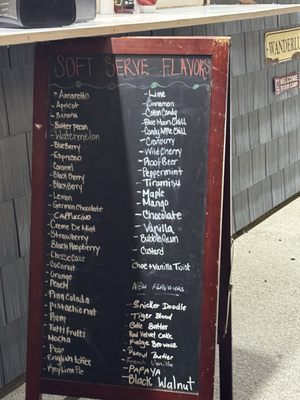 SOFT SERVE FLAVORS
- Amaretto
- Apricot
- Banana
- Butter Pecan
- Watermelon
- Blueberry
- Espresso
- Caramel
- Black Cherry
- Blackberry
- Lemon
- German Chocolate
- Cappuccino
- Creme De Mint
- Strawberry
- Black Raspberry
- Cheesecake
- Coconut
- Orange
- Peach
- Pina Colada
- Pistachio nut
- Plum
- Tutti Frutti
- Mocha
- Pear
- English Toffee
- Key Lime Pie
- Lime
- Cinnamon
- Cotton Candy
- Blue Moon Chill
- Candy Apple Chill
- Cranberry
- Wild Cherry
- Root Beer
- Peppermint
- Tiramisu
- Maple
- Mango
- Chocolate
- Vanilla
- Bubble Gum
- Custard
Choc + Vanilla Twist
NEW FLAVOURS
- Snicker Doodle
- Tiger Blood
- Cake Batter
- Red Velvet Cake
- Fudge Brownie
- Peanut Butter
- French Vanilla
- PAPAYA
- Black Walnut
WANDERL
WELCOME